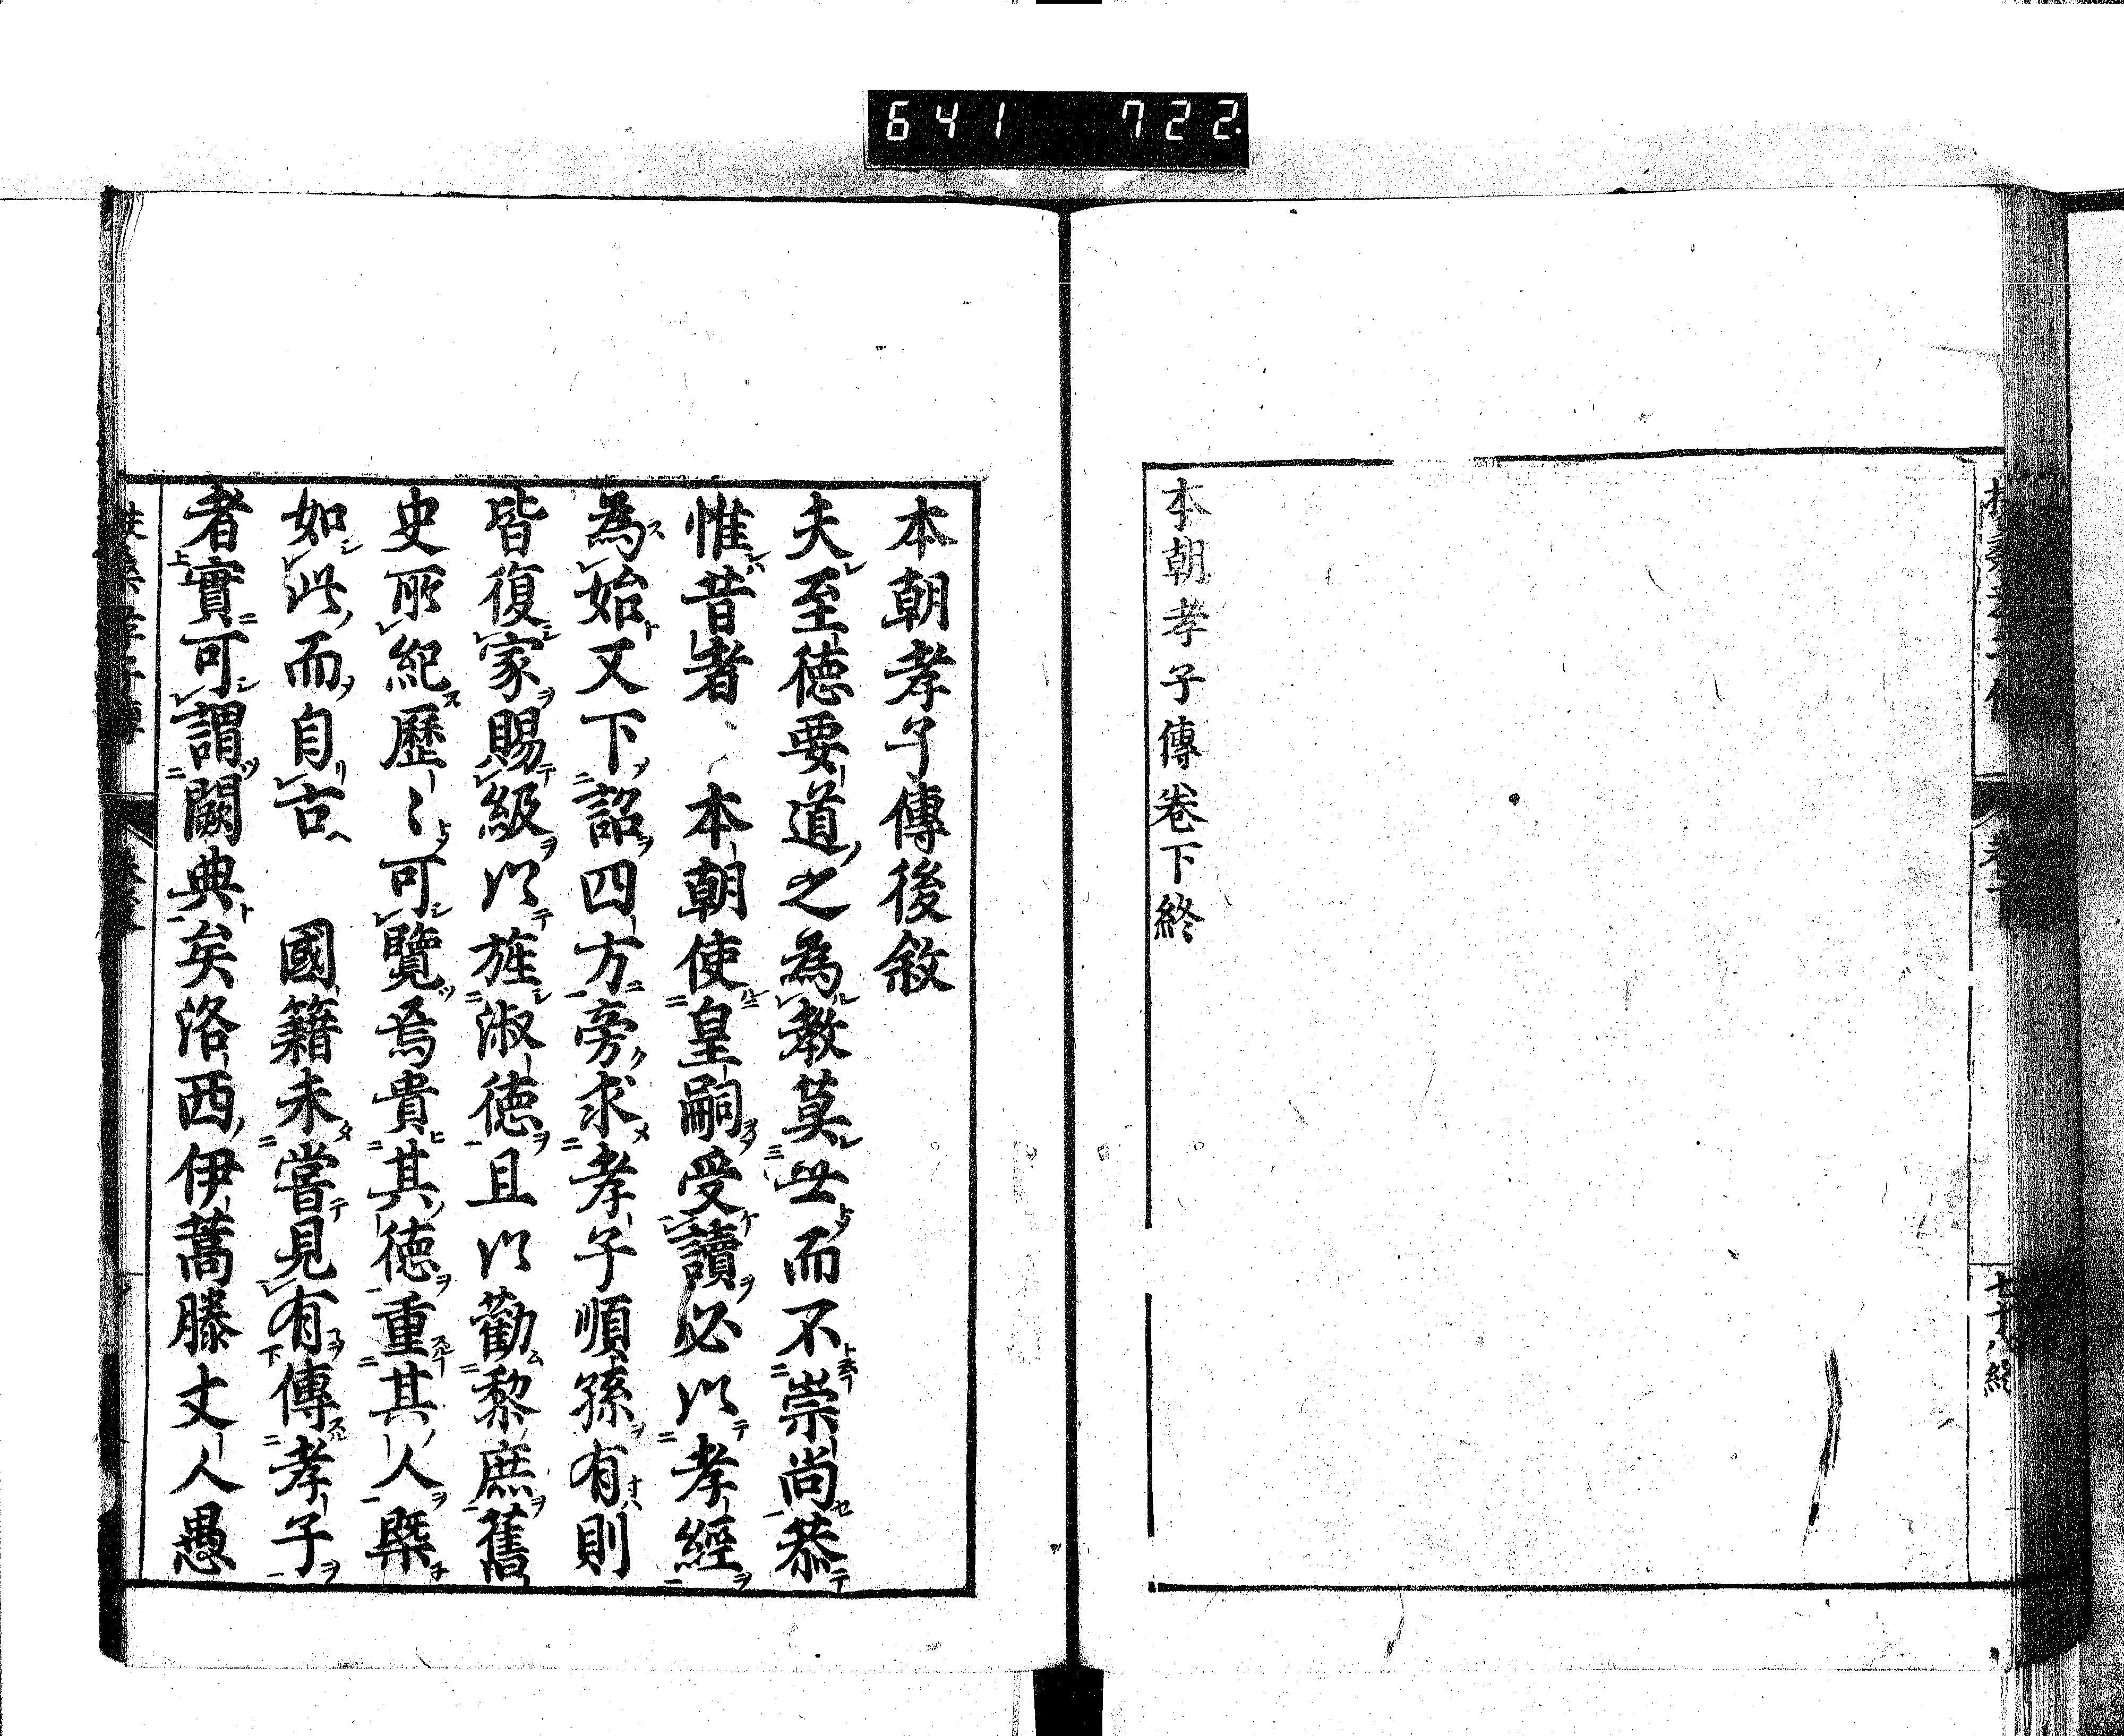 641 722.
七十八終
本朝孝子傳卷下終
本朝孝子傳後敘
夫至徳要道之為教莫世而不崇尚恭
惟昔者　本朝使皇嗣受讀必以孝經
為始又下詔四方旁求孝子順孫有則
皆復家賜級以旌淑徳且以勸黎庶舊
史所紀歷〻可覽焉貴其徳重其人槩
如此而自古　國籍未嘗見有傳孝子
者實可謂闕典矣洛西伊蒿滕丈人愚